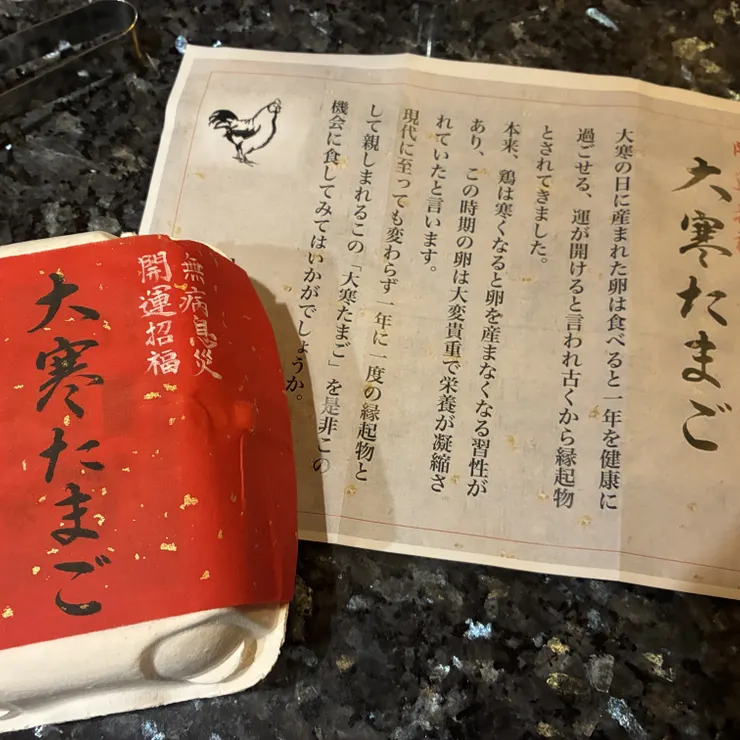 大寒たまご
大寒の日に産まれた卵は食べると一年を健康に
過ごせる、運が開けると言われ古くから縁起物
とされてきました。
本来、鶏は寒くなると卵を産まなくなる習性が
あり、この時期の卵は大変貴重で栄養が凝縮さ
れていたと言います。
現代に至っても変わらず一年に一度の縁起物と
して親しまれるこの「大寒たまご」を是非この
機会に食してみてはいかがでしょうか。
無病息災
開運招福
大寒たまご